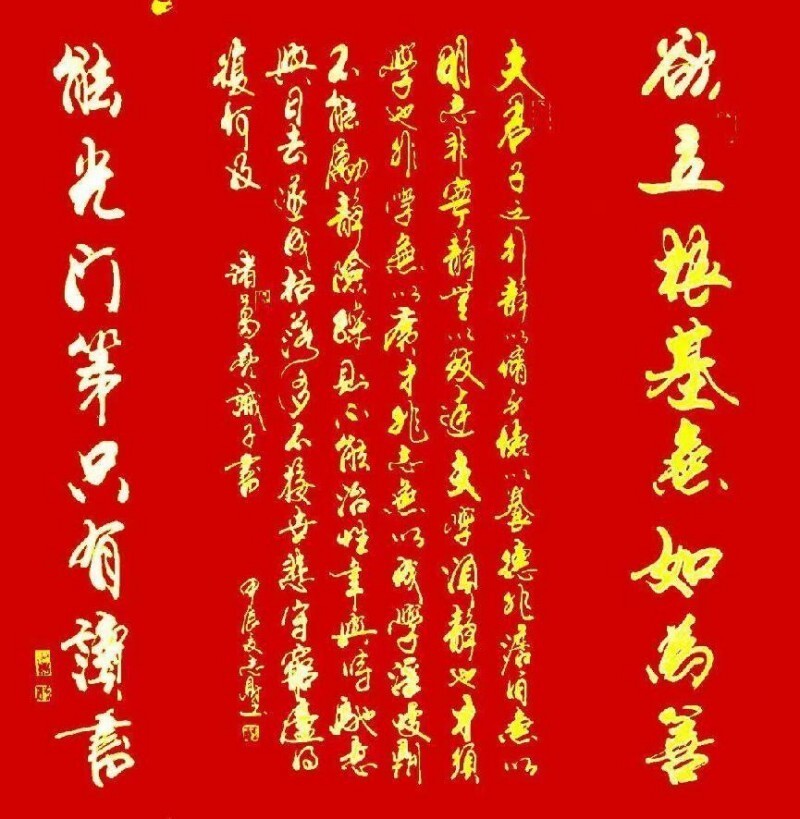 欲立根基無如為善
夫君子之行靜以脩身儉以養德非澹泊無以
明志非寧靜無以致遠夫學須靜也才須
學也非學無以廣才非志無以成學淫慢則
不能勵靜險躁則不能治性年與時馳意
與日去遂成枯落多不接世悲守窮廬將
復何及 諸葛亮誡子書 甲辰文志
能光门第只有讀書